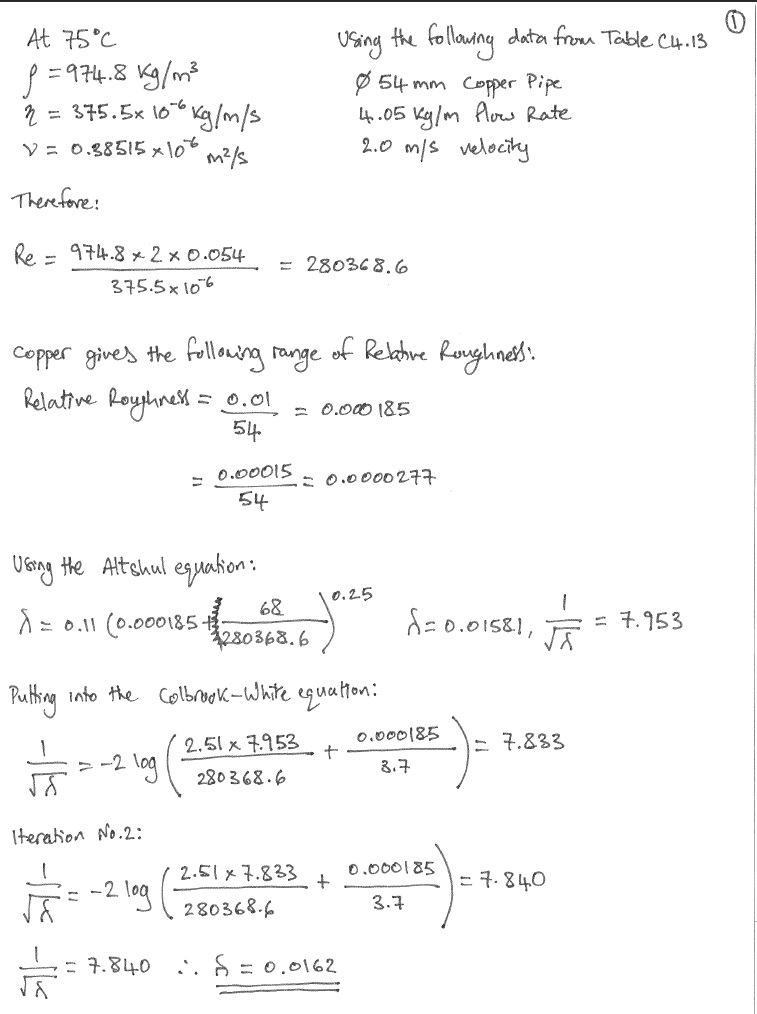 ①
At 75°C
ρ = 974.8 Kg/m³
η = 375.5 x 10⁻⁶ Kg/m/s
ν = 0.38515 x 10⁻⁶ m²/s
Using the following data from Table C4.13
Ø 54 mm Copper Pipe
4.05 Kg/m flow Rate
2.0 m/s velocity
Therefore:
Re = (974.8 x 2 x 0.054) / (375.5 x 10⁻⁶) = 280368.6
Copper gives the following range of Relative Roughness:
Relative Roughness = 0.01 / 54 = 0.000185
= 0.00015 / 54 = 0.0000277
Using the Altshul equation:
λ = 0.11 (0.000185 + 68 / 280368.6)^0.25 λ = 0.01581, 1/√λ = 7.953
Putting into the Colbrook-White equation:
1/√λ = -2 log (2.51 x 7.953 / 280368.6 + 0.000185 / 3.7) = 7.833
Iteration No.2:
1/√λ = -2 log (2.51 x 7.833 / 280368.6 + 0.000185 / 3.7) = 7.840
1/√λ = 7.840 ∴ λ = 0.0162